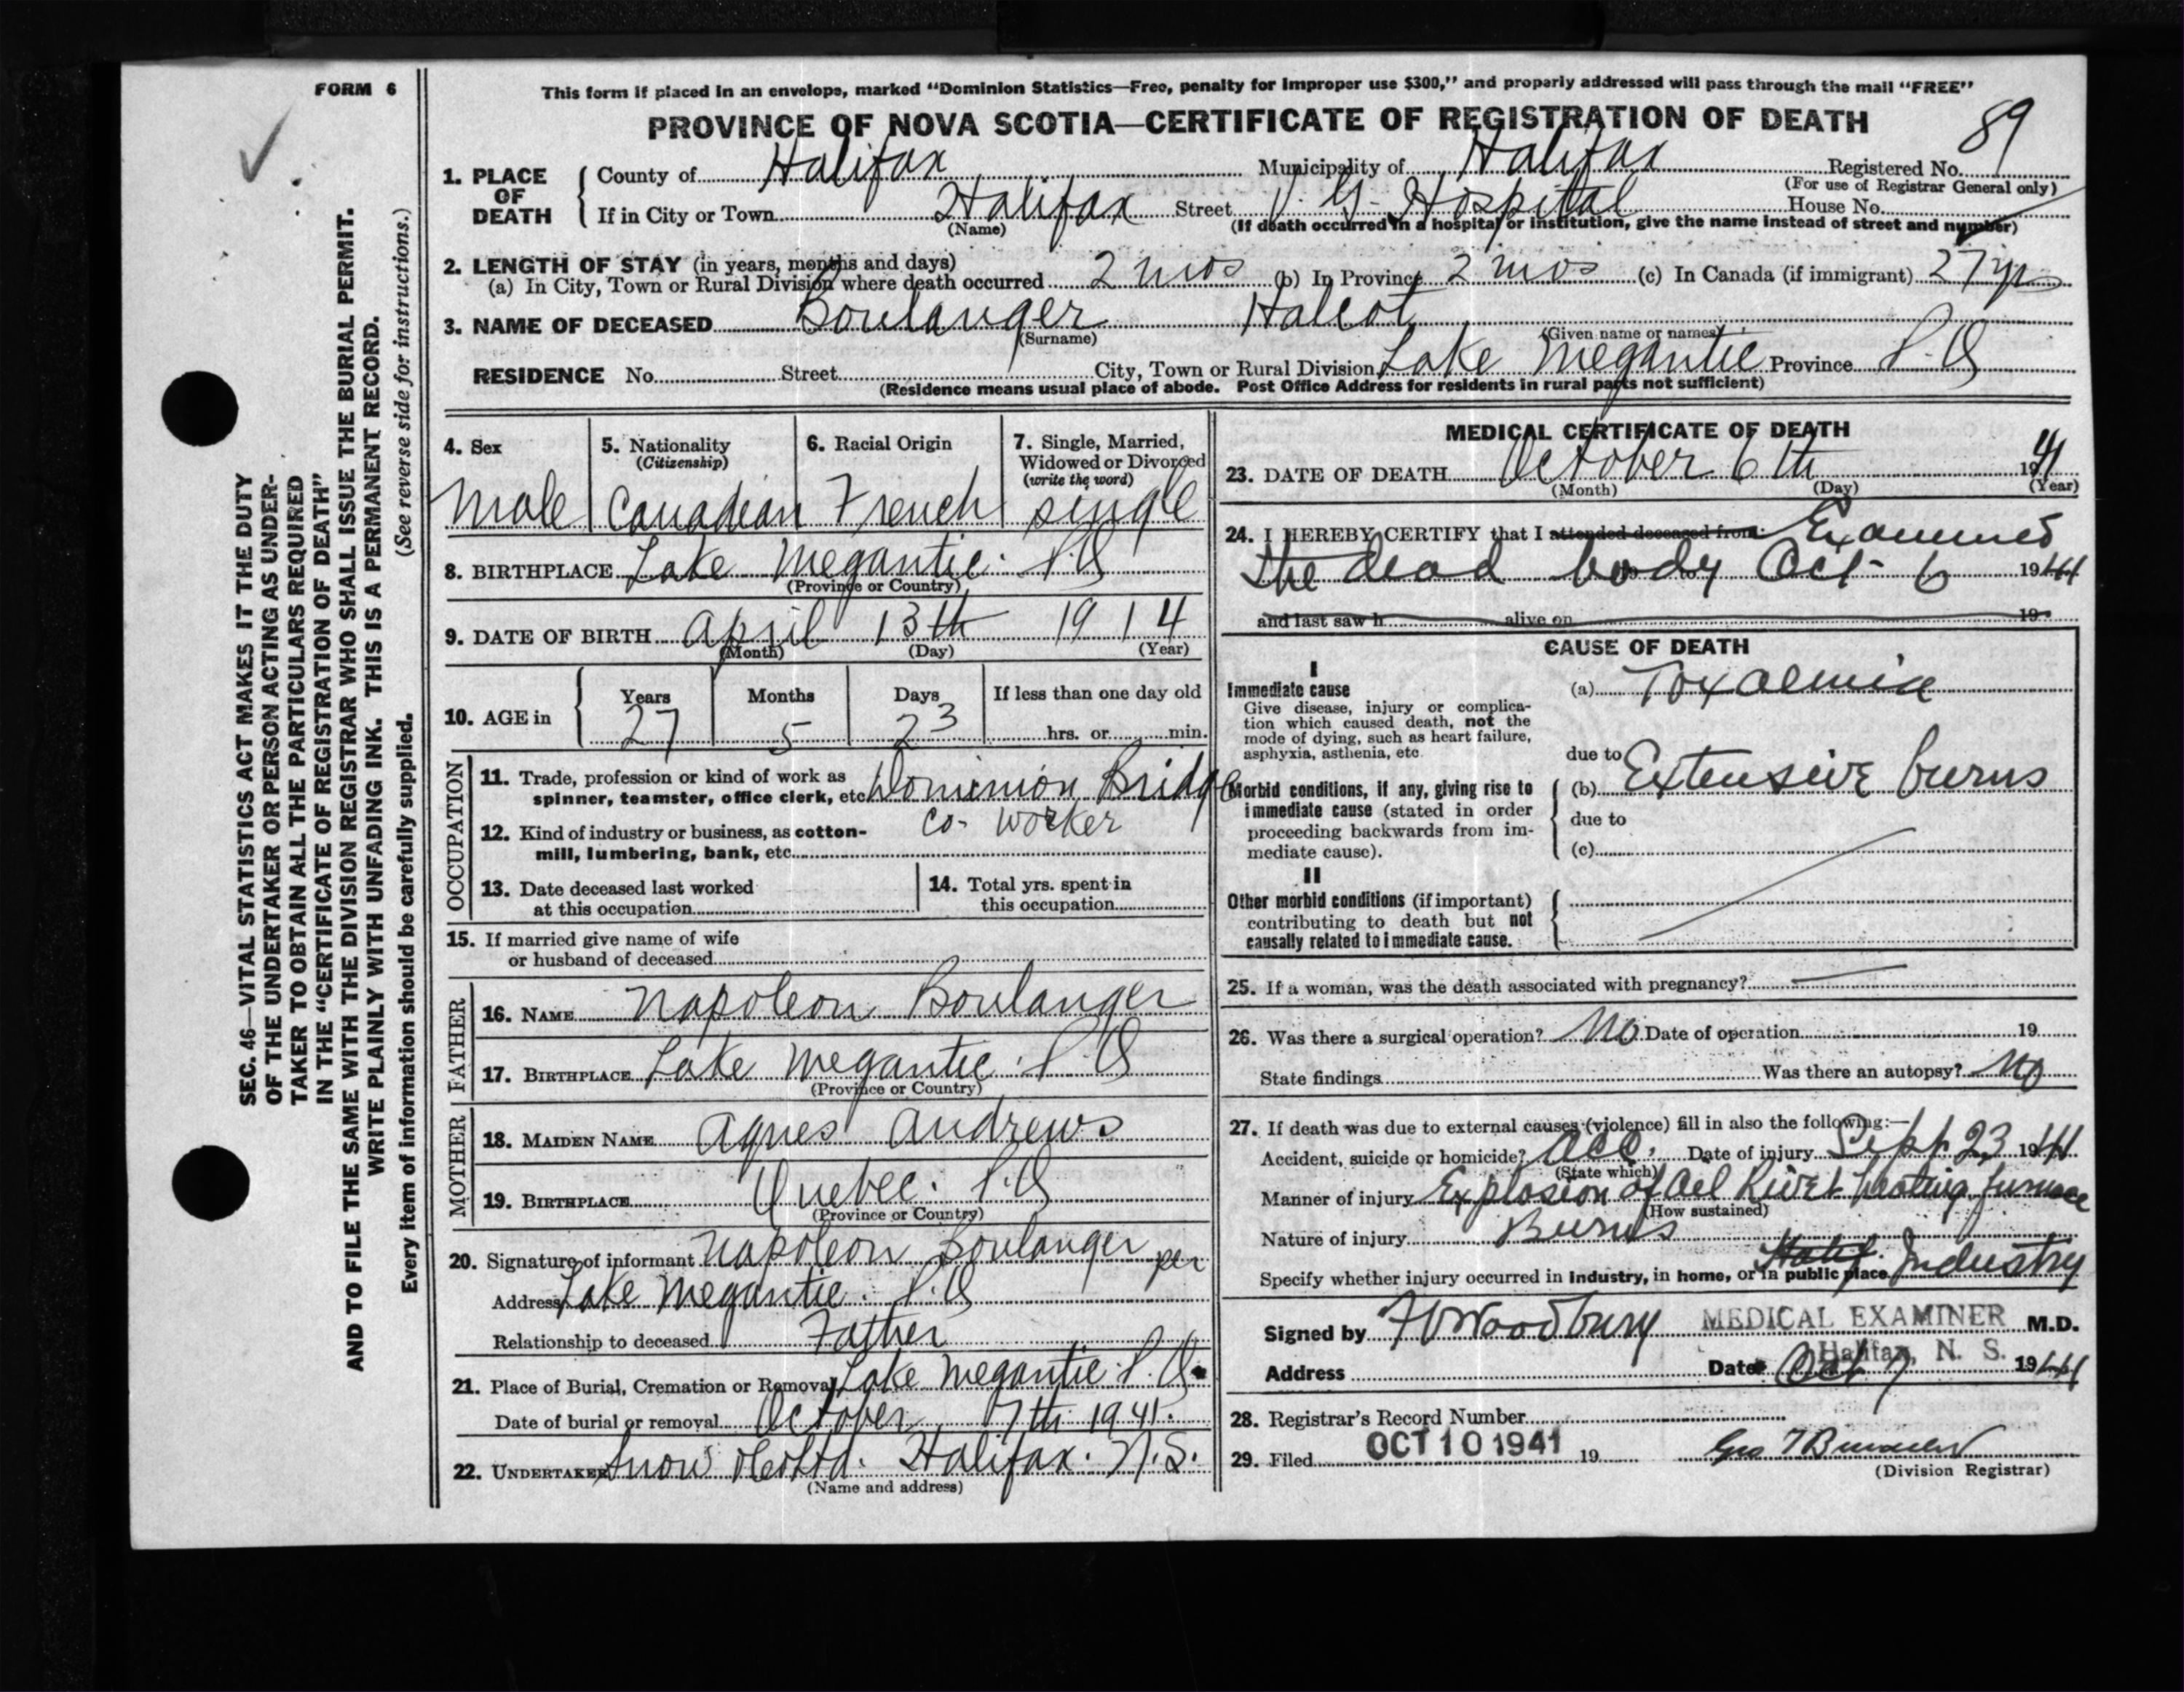 FORM 6
This form if placed in an envelope, marked "Dominion Statistics—Free, penalty for improper use $300," and properly addressed will pass through the mail "FREE"
PROVINCE OF NOVA SCOTIA—CERTIFICATE OF REGISTRATION OF DEATH
89
1. PLACE OF DEATH
County of Halifax Municipality of Halifax Registered No.
(For use of Registrar General only)
If in City or Town Halifax Street V. G. Hospital House No.
(Name) (If death occurred in a hospital or institution, give the name instead of street and number)
2. LENGTH OF STAY (in years, months and days)
(a) In City, Town or Rural Division where death occurred 2 mos (b) In Province 2 mos (c) In Canada (if immigrant) 27 yrs
3. NAME OF DECEASED Boulanger Halcot
(Surname) (Given name or names)
RESIDENCE No. Street City, Town or Rural Division Lake Megantic Province P.Q
(Residence means usual place of abode. Post Office Address for residents in rural parts not sufficient)
4. Sex
Male
5. Nationality
(Citizenship)
Canadian
6. Racial Origin
French
7. Single, Married,
Widowed or Divorced
(write the word)
single
8. BIRTHPLACE Lake Megantic. P.Q
(Province or Country)
9. DATE OF BIRTH April 13th 1914
(Month) (Day) (Year)
10. AGE in
Years Months Days If less than one day old
27 5 23 hrs. or min.
OCCUPATION
11. Trade, profession or kind of work as
spinner, teamster, office clerk, etc. Dominion Bridge
12. Kind of industry or business, as cotton- Co- Worker
mill, lumbering, bank, etc.
13. Date deceased last worked
at this occupation
14. Total yrs. spent in
this occupation
15. If married give name of wife
or husband of deceased
FATHER
16. NAME Napoleon Boulanger
17. BIRTHPLACE Lake Megantic. P.Q
(Province or Country)
MOTHER
18. MAIDEN NAME Agnes Andrews
19. BIRTHPLACE Quebec. P.Q
(Province or Country)
20. Signature of informant Napoleon Boulanger per
Address Lake Megantic. P.Q
Relationship to deceased Father
21. Place of Burial, Cremation or Removal Lake Megantic. P.Q.
Date of burial or removal October 7th 1941.
22. UNDERTAKER Snow & Co Ltd. Halifax. N.S.
(Name and address)
MEDICAL CERTIFICATE OF DEATH
23. DATE OF DEATH October 6th 1941
(Month) (Day) (Year)
24. I HEREBY CERTIFY that I attended deceased from: Examined
the dead body Oct- 6 1941
and last saw h alive on 19
CAUSE OF DEATH
I
Immediate cause
Give disease, injury or complica-
tion which caused death, not the
mode of dying, such as heart failure,
asphyxia, asthenia, etc.
(a) Toxaemia
due to
Morbid conditions, if any, giving rise to
immediate cause (stated in order
proceeding backwards from im-
mediate cause).
(b) Extensive burns
due to
(c)
II
Other morbid conditions (if important)
contributing to death but not
causally related to immediate cause.
25. If a woman, was the death associated with pregnancy? —
26. Was there a surgical operation? No Date of operation 19
State findings Was there an autopsy? No
27. If death was due to external causes (violence) fill in also the following:—
Accident, suicide or homicide? Acc. Date of injury Sept 23 1941
(State which)
Manner of injury Explosion of Oil Rivet heating furnace
(How sustained)
Nature of injury Burns
Specify whether injury occurred in industry, in home, or in public place Industry
Signed by F V Woodbury MEDICAL EXAMINER M.D.
Halifax, N. S.
Address Date Oct 7 1941
28. Registrar's Record Number
29. Filed OCT 10 1941 19
(Division Registrar)
SEC. 46—VITAL STATISTICS ACT MAKES IT THE DUTY
OF THE UNDERTAKER OR PERSON ACTING AS UNDER-
TAKER TO OBTAIN ALL THE PARTICULARS REQUIRED
IN THE "CERTIFICATE OF REGISTRATION OF DEATH"
AND TO FILE THE SAME WITH THE DIVISION REGISTRAR WHO SHALL ISSUE THE BURIAL PERMIT.
WRITE PLAINLY WITH UNFADING INK. THIS IS A PERMANENT RECORD.
Every item of information should be carefully supplied. (See reverse side for instructions.)